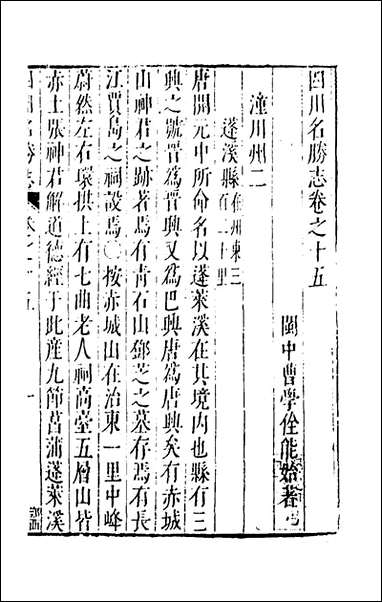 四川名勝志卷之十五
閩中曹學佺能始著
潼川州二
蓬溪縣在州東三百二十里
唐開元中所命名以蓬萊溪在其境内也縣有三
興之號晉爲晉興又爲巴興唐爲唐興矣有赤城
山神君之跡著焉有青石山鄧芝之墓存焉有長
江賈島之祠設焉〇按赤城山在治東一里中峰
蔚然左右環拱上有七曲老人祠高臺五層山皆
赤土張神君解道德經于此産九節菖蒲蓬萊溪
四川名勝志
卷之十五
一